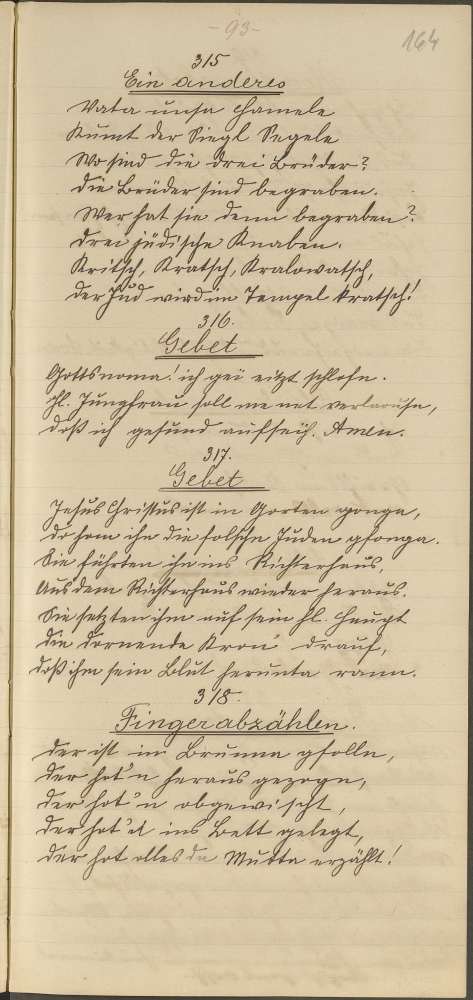 -93-
164
315
Ein anderes
Vata unsa Chamele
Kumt der Siegl Segele
Wo sind die drei Brüder?
Die Brüder sind begraben.
Wer hat sie denn begraben?
Drei jüdische Knaben.
Kritsch, Kratsch, Kralowatsch,
der Jud wird im Tempel kratsch!
316.
Gebet
Gottsnoma! ich gei eitzt schlofn.
Hl. Jungfrau soll me net verlaoussn,
doß ich gesund aufsteih. Amen.
317.
Gebet
Jesus Christus ist in Gorten gonga,
do hom ihn die folschn Juden gfonga.
Sie führten ihn ins Richterhaus,
Aus dem Richterhaus wieder heraus.
Sie setzten ihm auf sein hl. Haupt
die dornende Kron' drauf,
doß ihm sein Blut herunta rann.
318.
Fingerabzählen.
Der ist in Brunna gfolln,
der hot'n heraus gezogn,
der hot'n obgewischt,
der hot'n ins Bett gelegt,
der hot olles da Mutta erzählt!